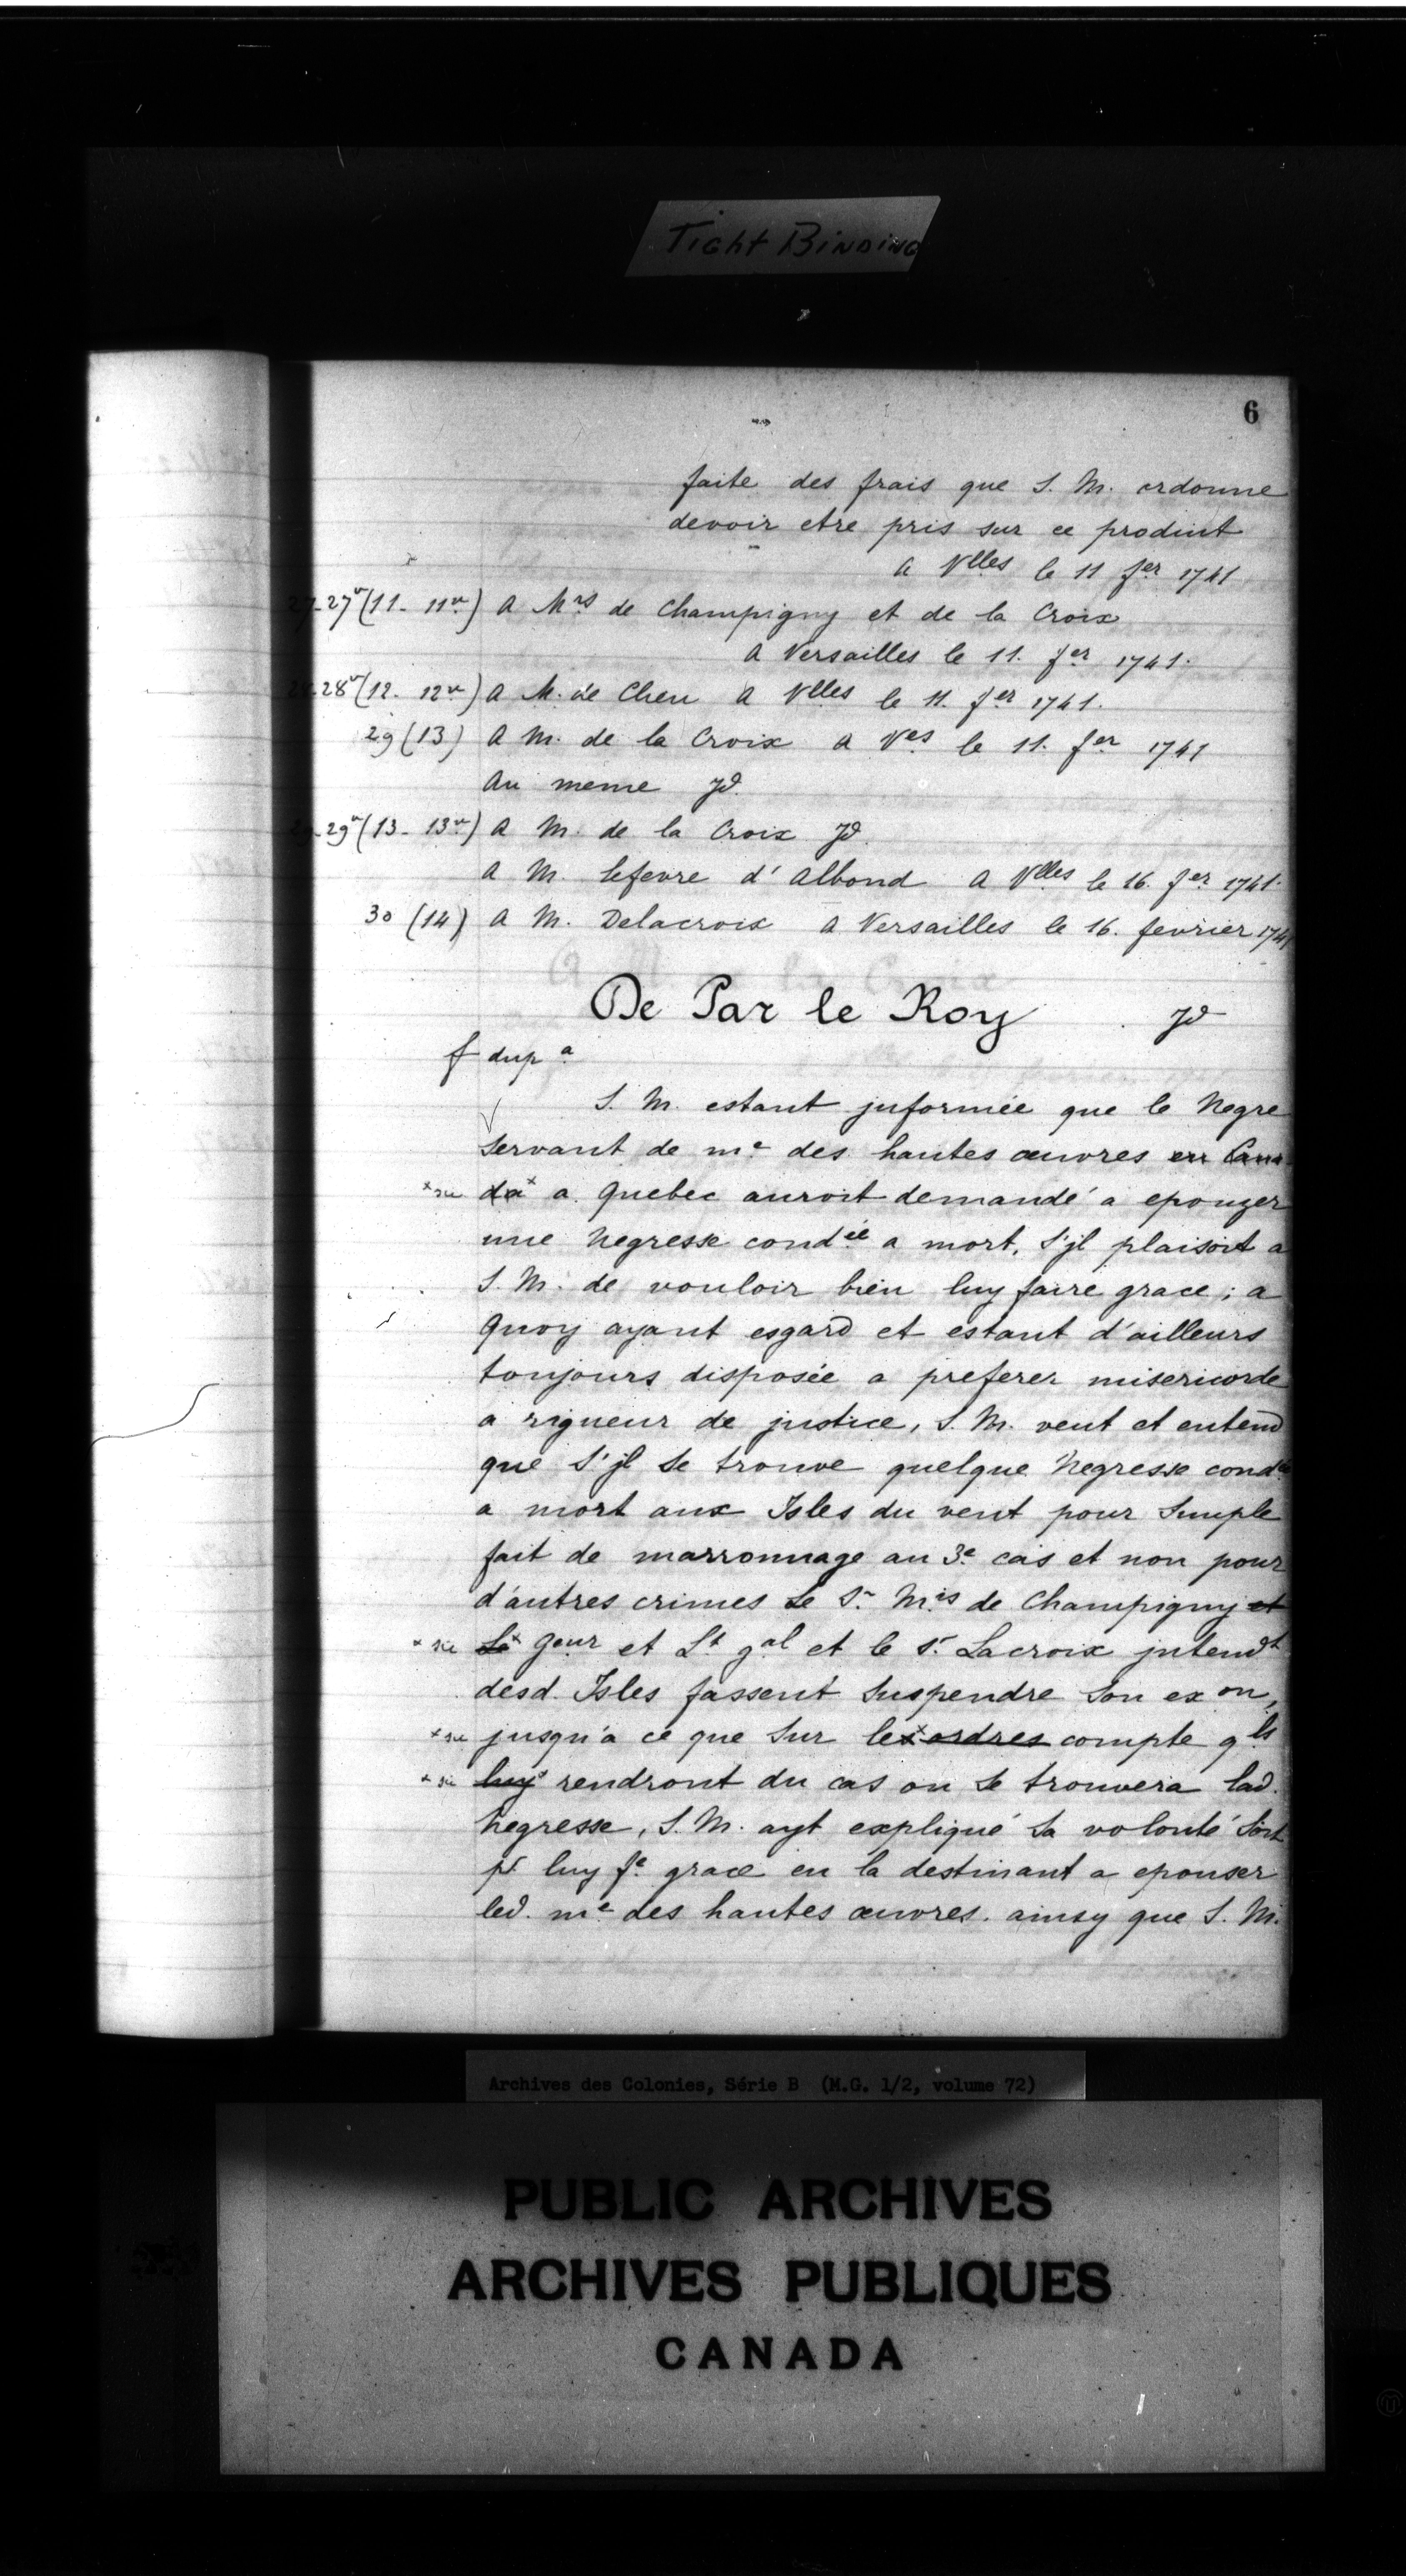 Tight Binding
6
faite des frais que S. M. ordonne
devoir etre pris sur ce produit
a Vlles le 11 fer 1741
27-27v (11- 11v) a Mrs de Champigny et de la Croix
a Versailles le 11. fer 1741.
28-28v (12- 12v) a M. de Clieu a Vlles le 11. fer 1741.
29 (13) a M. de la Croix a Ves le 11. fer 1741
au meme Jd.
29-29v (13- 13v) a M. de la Croix Jd.
a M. lefevre d'albond a Vlles le 16. fer 1741.
30 (14) a M. Delacroix a Versailles le 16. fevrier 1741
De Par le Roy Jd
f dup a
S. M. estant jnformée que le Negre
servant de me des hautes œuvres en Cana-
x sic da x a Quebec auroit demandé a epouzer
une Negresse condée a mort, s'jl plaisoit a
S. M. de vouloir bien luy faire grace; a
quoy ayant esgard et estant d'ailleurs
toujours disposée a preferer misericorde
a rigueur de justice, S. M. veut et entend
que s'jl se trouve quelque Negresse condée
a mort aux Isles du vent pour simple
fait de marronnage au 3e cas et non pour
d'autres crimes Le Sr Mis de Champigny et
x sic Le x Geur et Lt gal et le Sr Lacroix jntendt
desd. Isles fassent suspendre son exon,
x sic jusqu'a ce que sur les x ordres compte qls
x sic luy x rendront du cas ou se trouvera lad.
Negresse, S. M. ayt expliqué sa volonté soit
pr luy fe grace en la destinant a epouser
led. me des hautes œuvres. ainsy que S. M.
Archives des Colonies, Série B (M.G. 1/2, volume 72)
PUBLIC ARCHIVES
ARCHIVES PUBLIQUES
CANADA